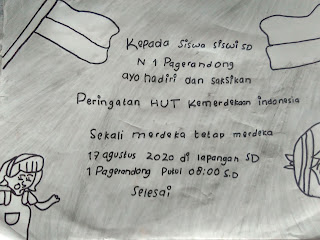 Kepada siswa siswi SD
N 1 Pagerandong
ayo hadiri dan saksikan
Peringatan HUT Kemerdekaan indonesia
Sekali merdeka tetap merdeka
17 agustus 2020 di lapangan SD
1 Pagerandong Pukul 08:00 S.D
Selesai